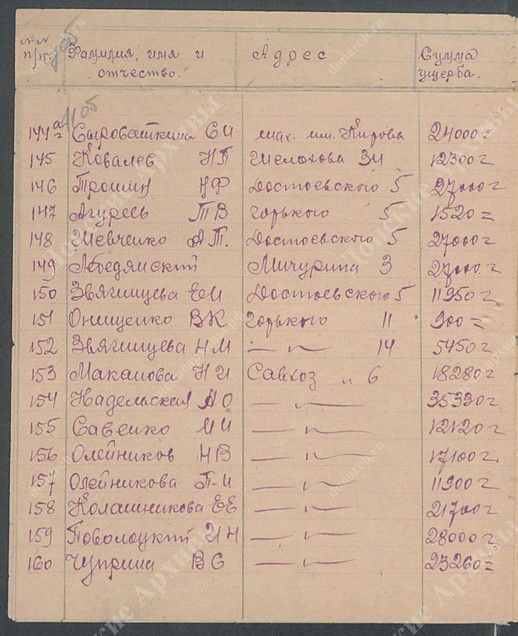 №№ п/п Фамилия, имя и отчество. Адрес Сумма ущерба.
144а Сыроваткина Е И шах. им. Кирова 24000=
145 Ковалев Н П Шелохова 34 12300=
146 Трошин Н Ф Достоевского 5 27000=
147 Агуреев Т В Горького 5 1520=
148 Шевченко А Т. Достоевского 5 27000=
149 Лебедянский Мичурина 3 27000=
150 Звягинцева Е И Достоевского 5 11950=
151 Онищенко В К Горького 11 900=
152 Звягинцева Н М — " — 14 5450=
153 Маканова Н И Савхоз № 6 18280=
154 Надельская А О — " — 35330=
155 Савенко И И — " — 12120=
156 Олейников Н В — " — 17100=
157 Олейникова П И — " — 11900=
158 Колашникова Е Е — " — 21700=
159 Поволоцкий И Н — " — 28000=
160 Чуприна В С — " — 23260=